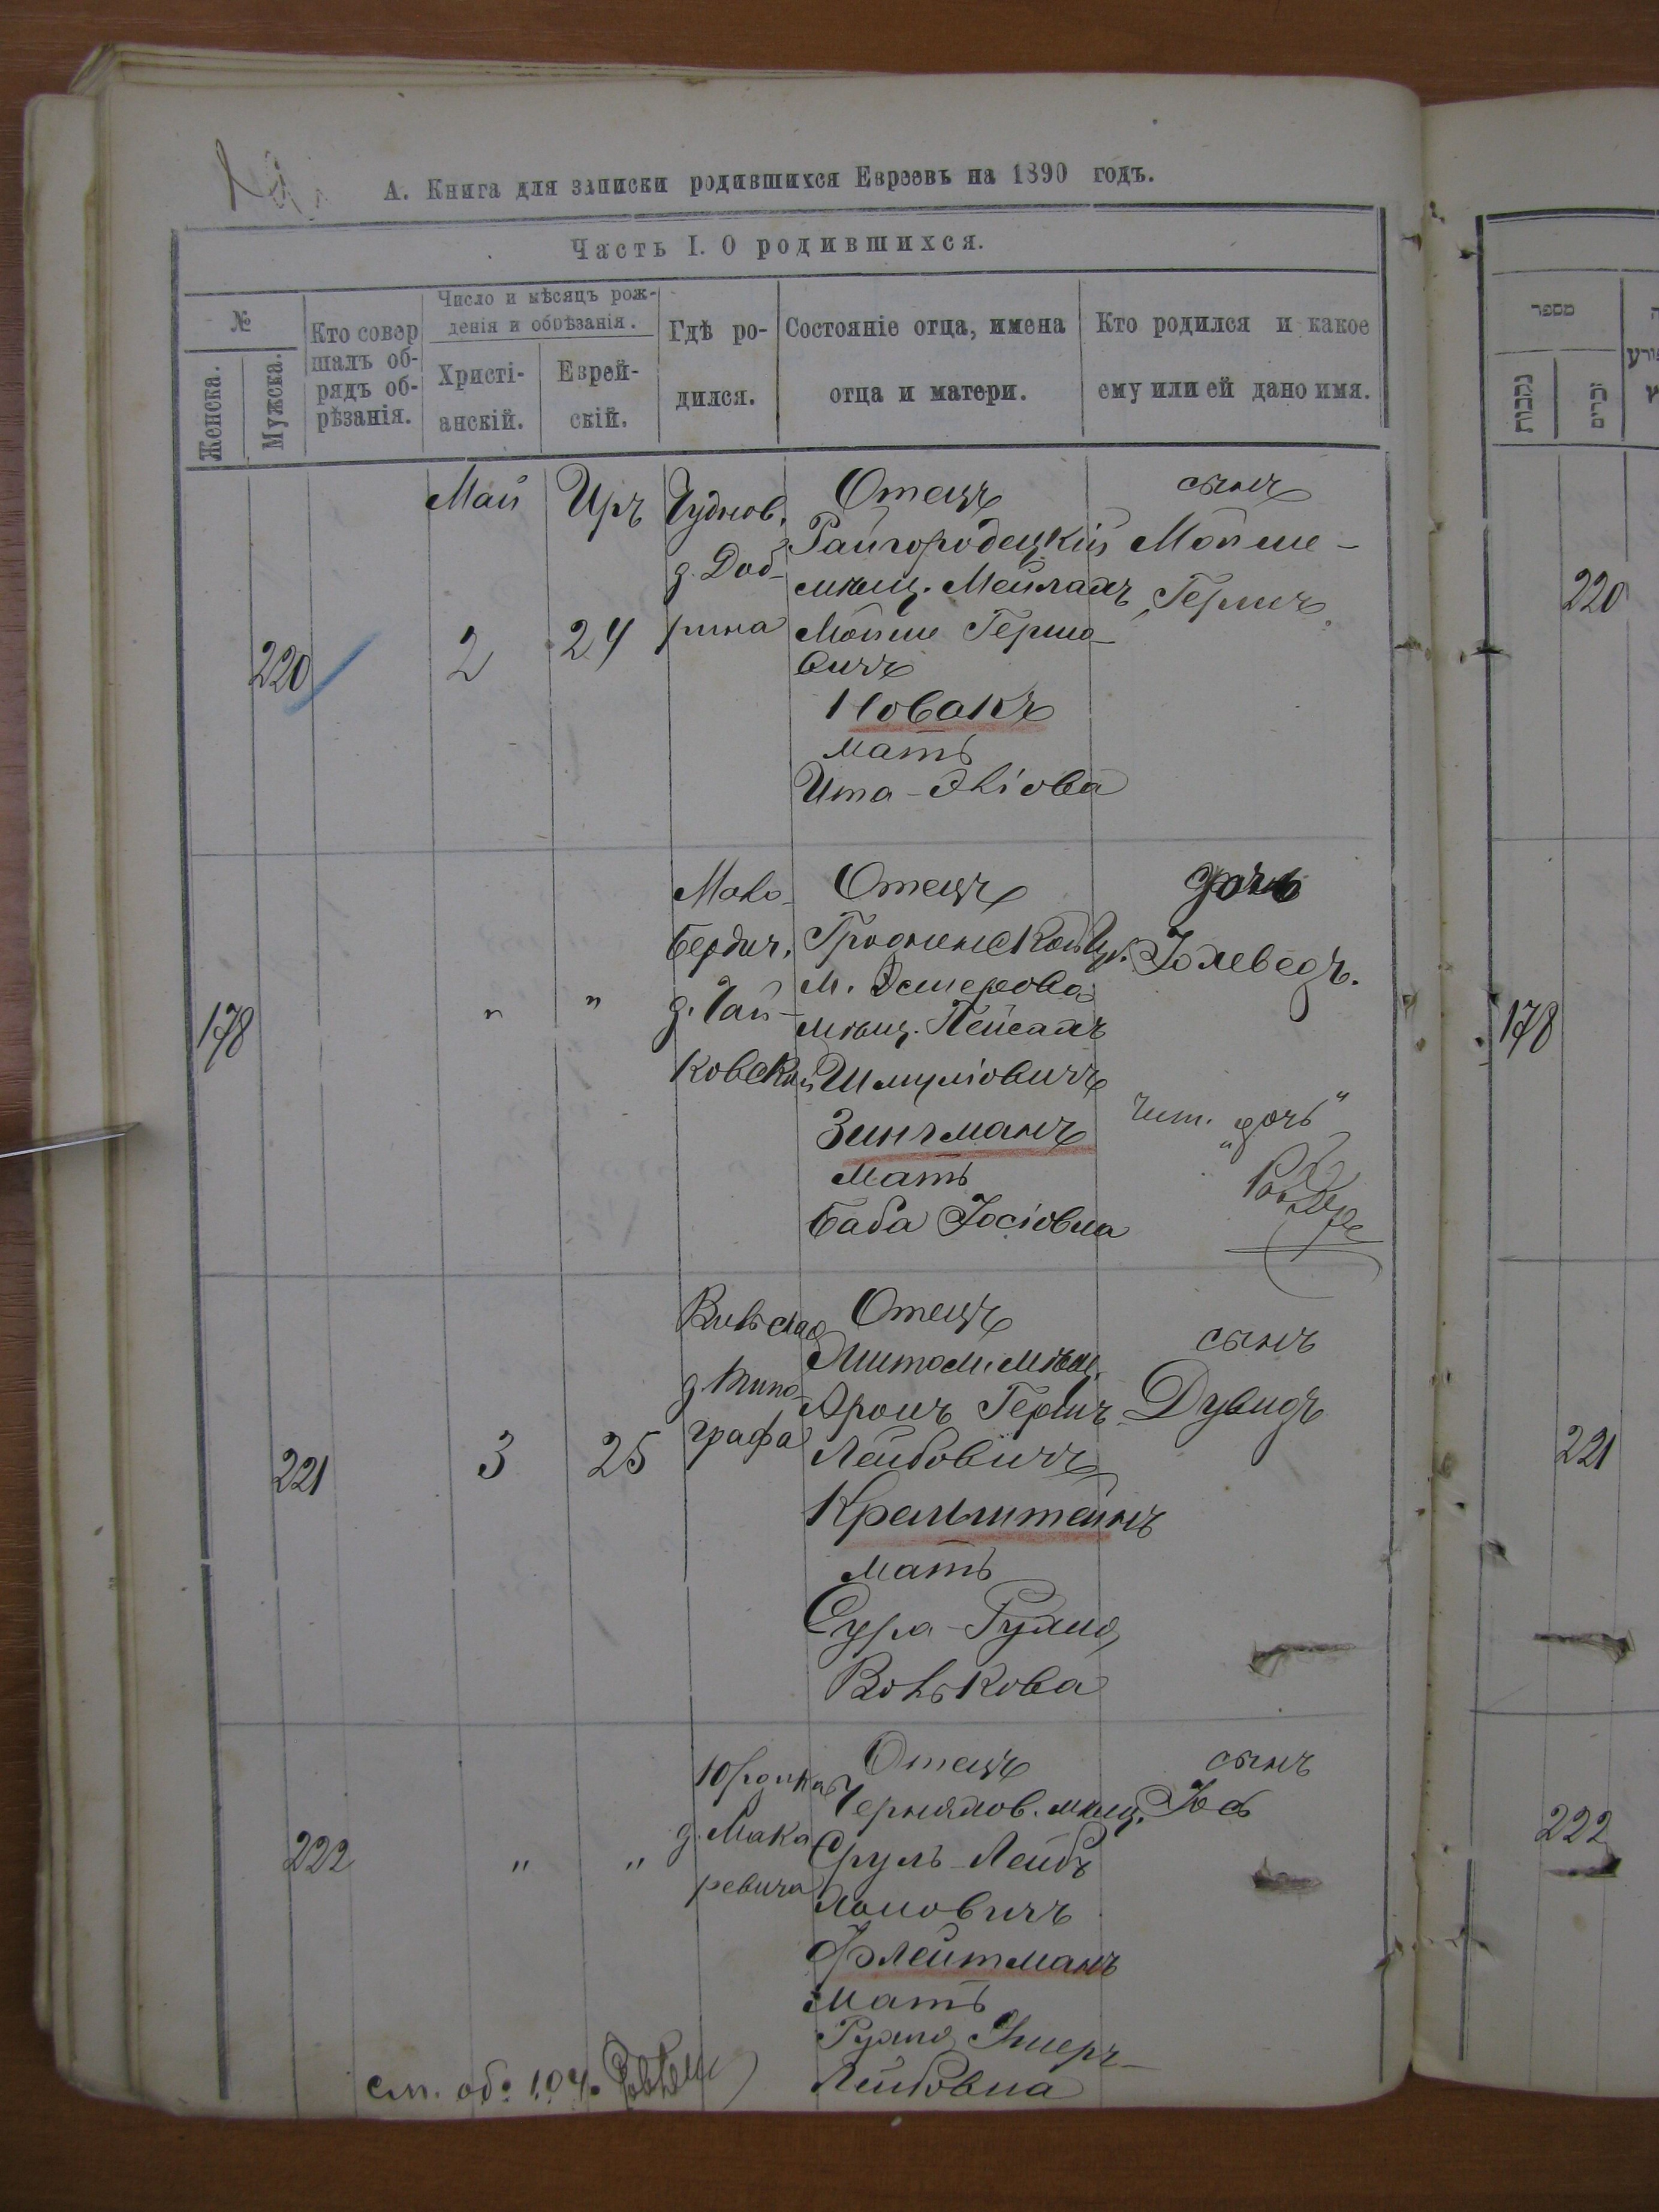 А. Книга для записки родившихся Евреевъ на 1890 годъ.
Часть I. О родившихся.
№
Женска.
Мужска.
Кто совер
шалъ об-
рядъ об-
рѣзанія.
Число и мѣсяцъ рож-
денія и обрѣзанія.
Христі-
анскій.
Еврей-
скій.
Гдѣ ро-
дился.
Состояніе отца, имена
отца и матери.
Кто родился и какое
ему или ей дано имя.
220
Май
2
Иръ
24
Чуднов.
д. Доб-
рина
Отецъ
Райгородецкій
мѣщ. Мейлахъ
Мойше Гершо-
вичъ
Новакъ
мать
Ита
сынъ
Мойше-
Гершъ
178
"
"
Мало-
Бердич.
д. Чай-
ковской
Отецъ
Гродненской Губ.
м.
мѣщ. Пейсахъ
Шмуліовичъ
Зингманъ
Мать
Баба Іосіовна
дочь
Іохеведъ.
чит. "дочь"
221
3
25
Вильская
д. Типо-
графа
Отецъ
Житом. мѣщ.
Аронъ Гершъ
Лейбовичъ
Крельштейнъ
мать
Сура-Рухля
Волькова
сынъ
Дувидъ
222
"
"
д. Мака
ревича
Отецъ
Черняхов. мѣщ.
Сруль-Лейбъ
Флейтманъ
Мать
Рухля
Лейбовна
сынъ
Іосъ
см. об. 104.
מספר
נקבות
זכרים
220
178
221
222